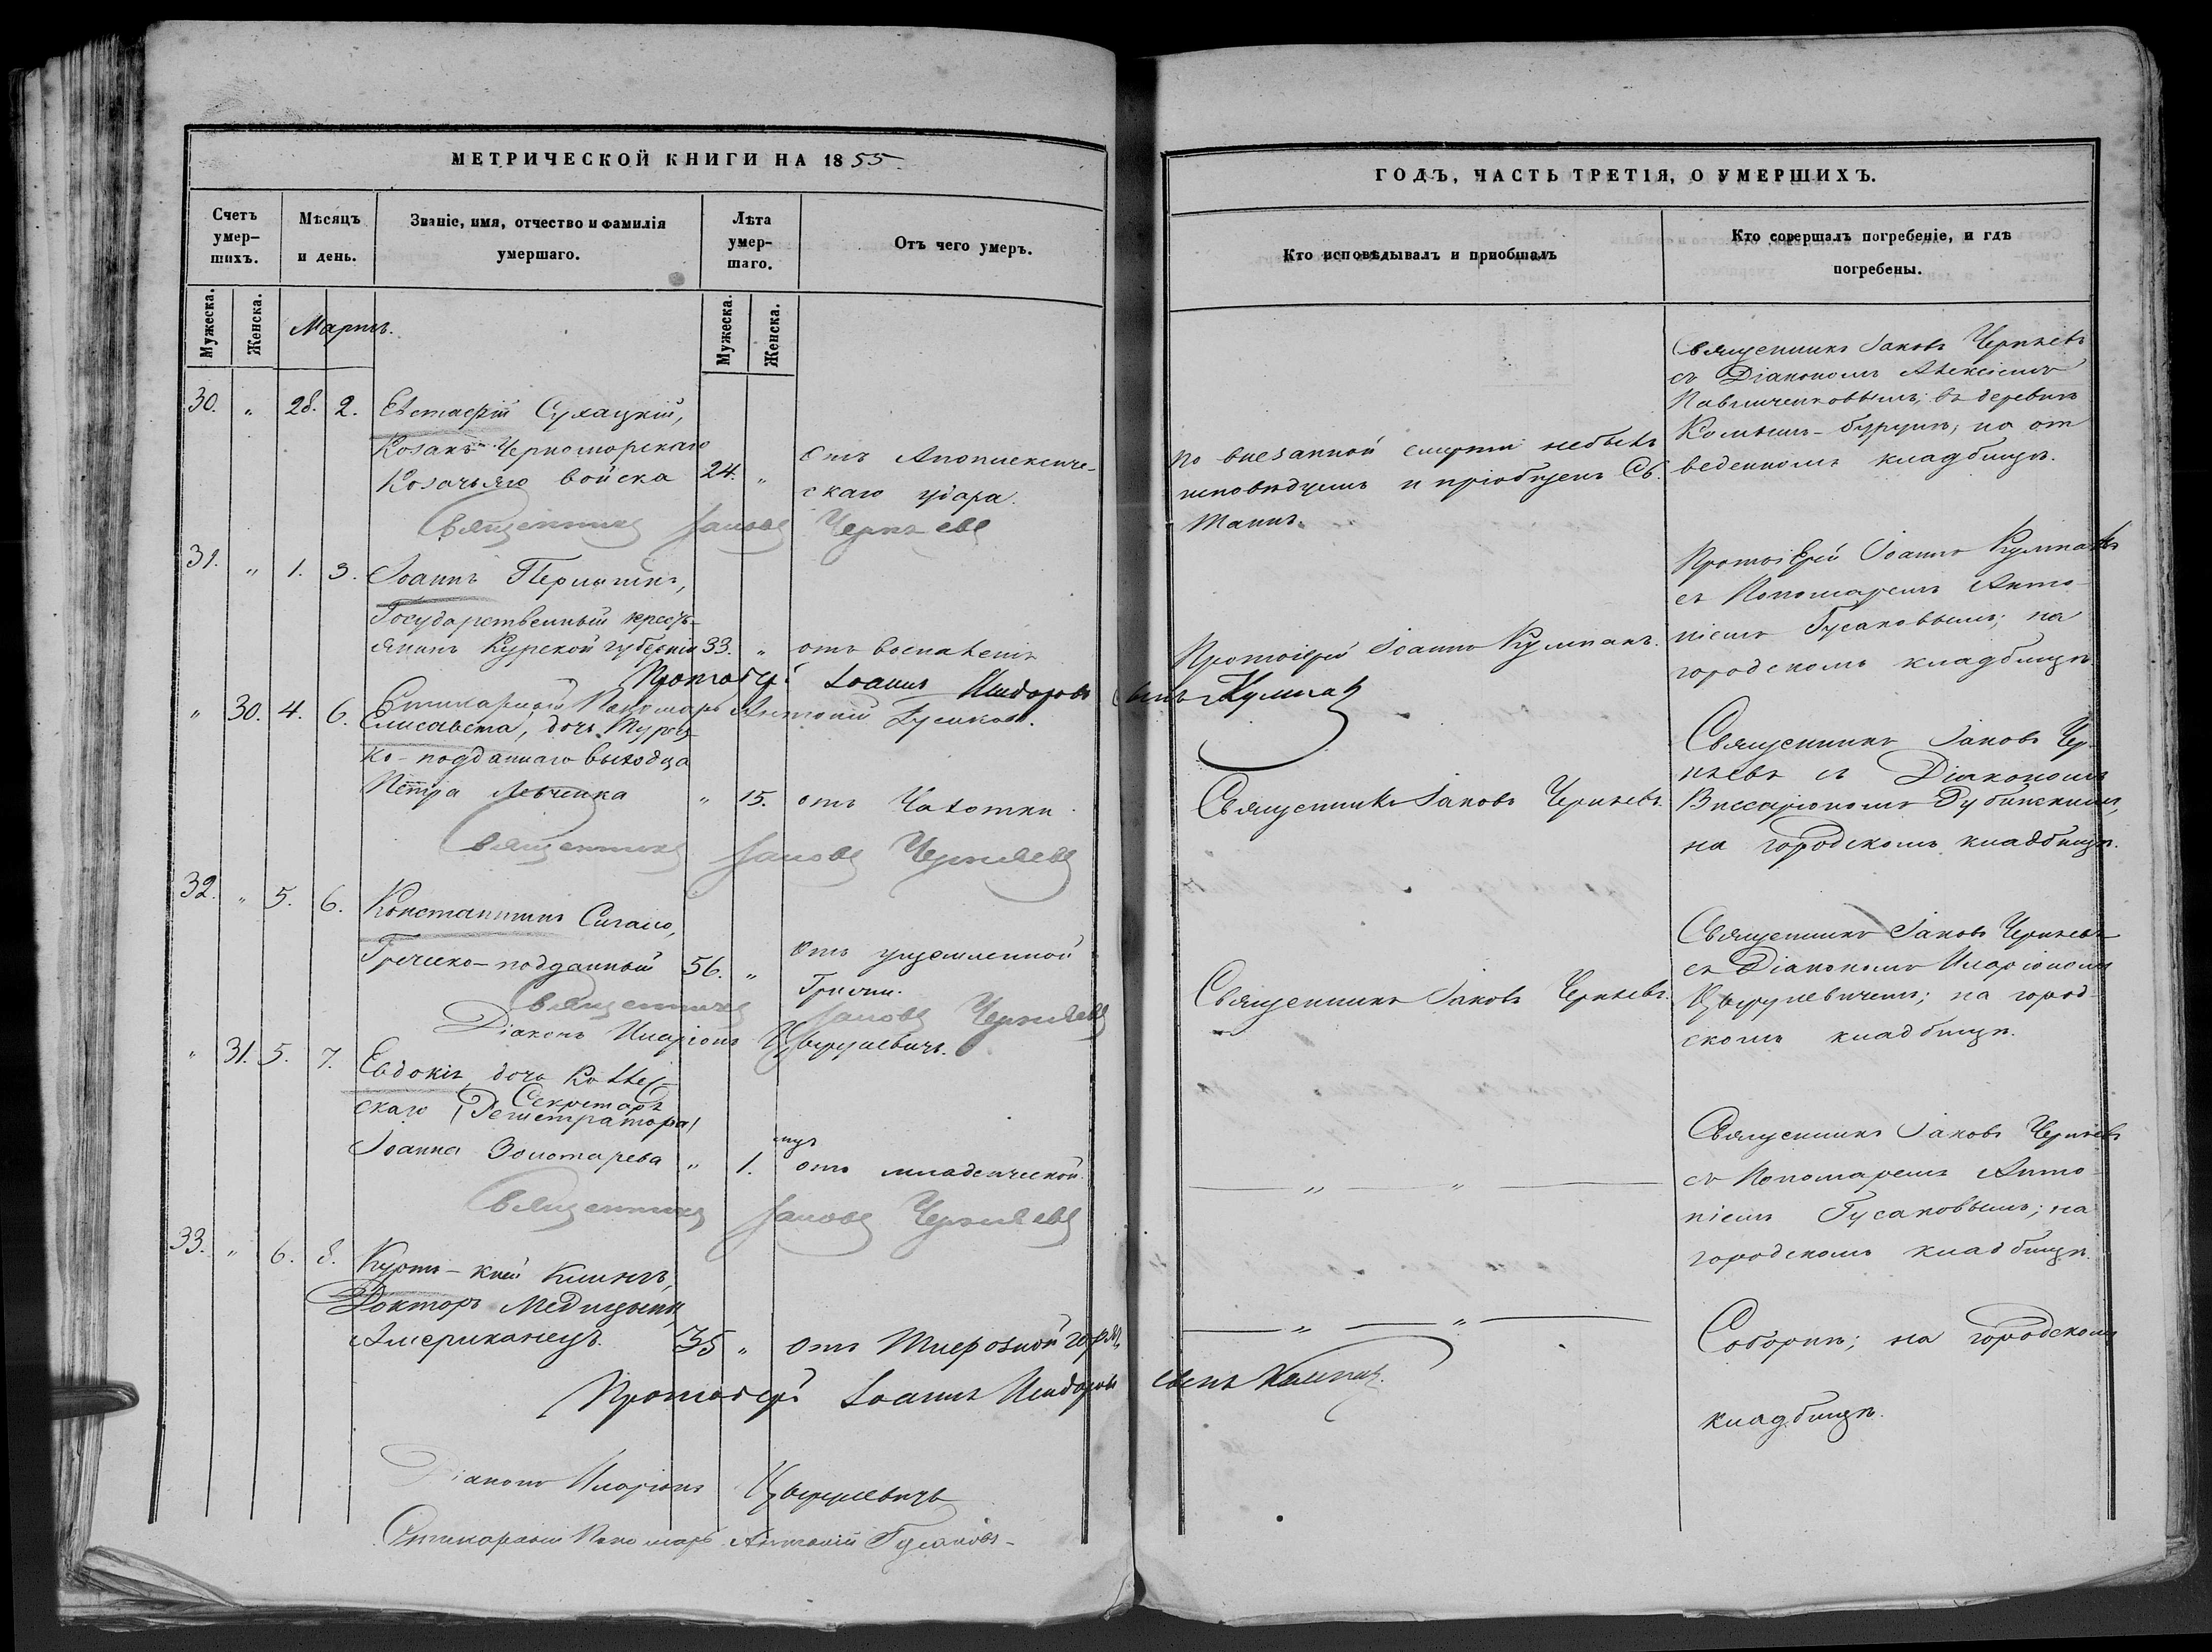 МЕТРИЧЕСКОЙ КНИГИ НА 1855
Счетъ умер-шихъ.
Мѣсяцъ и день.
Званіе, имя, отчество и фамилія умершаго.
Лѣта умер-шаго.
Отъ чего умеръ.
Мужеска.
Женска.
Мартъ.
Мужеска.
Женска.
30. „ 28. 2. Евстафій Сухацкій,
Козакъ Черноморскаго
Козачьяго войска 24. „ Отъ Апоплексиче-
скаго удара.
Священникъ Іаковъ Чернѣевъ
31. „ 1. 3. Іоаннъ
Государственный кресть-
янинъ Курской губерніи 33. „ отъ воспаленія
Протоіерей Іоаннъ Исидоровъ сынъ Кумпанъ
Стихарный Пономарь Антоній Гусаковъ.
„ 30. 4. 6. Елисавета, дочь Турец-
ко-подданнаго выходца
Петра Левченка „ 15. отъ Чахотки.
Священникъ Іаковъ Чернѣевъ
32. „ 5. 6. Константинъ Сигало,
Греческо-подданный 56. „ Отъ ущемленной
Грыжи.
Священникъ Іаковъ Чернѣевъ
Діаконъ Иларіонъ Цыруневичъ.
„ 31. 5. 7. Евдокія, дочь Коллеж-
скаго Секретаря
(Регистратора)
Іоанна Золотарева „ 1. отъ младенческой.
Священникъ Іаковъ Чернѣевъ
33. „ 6. 8. Куртъ-кей Клингъ,
Докторъ Медицыны,
Американецъ. 35 „ отъ Тифозной горяч.
Протоіерей Іоаннъ Исидоровъ сынъ Кумпанъ.
Діаконъ Иларіонъ Цыруневичъ
Стихарный Пономарь Антоній Гусаковъ
ГОДЪ, ЧАСТЬ ТРЕТІЯ, О УМЕРШИХЪ.
Кто исповѣдывалъ и пріобщалъ
Кто совершалъ погребеніе, и гдѣ погребены.
по внезапной смерти небылъ
исповѣдуемъ и пріобщенъ Св.
Таинъ.
Священникъ Іаковъ Чернѣевъ
съ Діакономъ Алексіемъ
Павличенковымъ; въ деревнѣ
Камышъ-бурунъ, на от
веденномъ кладбищѣ.
Протоіерей Іоаннъ Кумпанъ.
Протоіерей Іоаннъ Кумпанъ
съ Пономаремъ Анто-
ніемъ Гусаковымъ; на
городскомъ кладбищѣ
Священникъ Іаковъ Чернѣевъ.
Священникъ Іаковъ Чер-
нѣевъ съ Діакономъ
Виссаріономъ Дубинскимъ,
на городскомъ кладбищѣ.
Священникъ Іаковъ Чернѣевъ.
Священникъ Іаковъ Чернѣевъ
съ Діакономъ Иларіономъ
Цыруневичемъ; на город-
скомъ кладбищѣ.
„ „
Священникъ Іаковъ Чернѣевъ
съ Пономаремъ Анто-
ніемъ Гусаковымъ; на
городскомъ кладбищѣ.
„ „
Соборнѣ; на городскомъ
кладбищѣ.